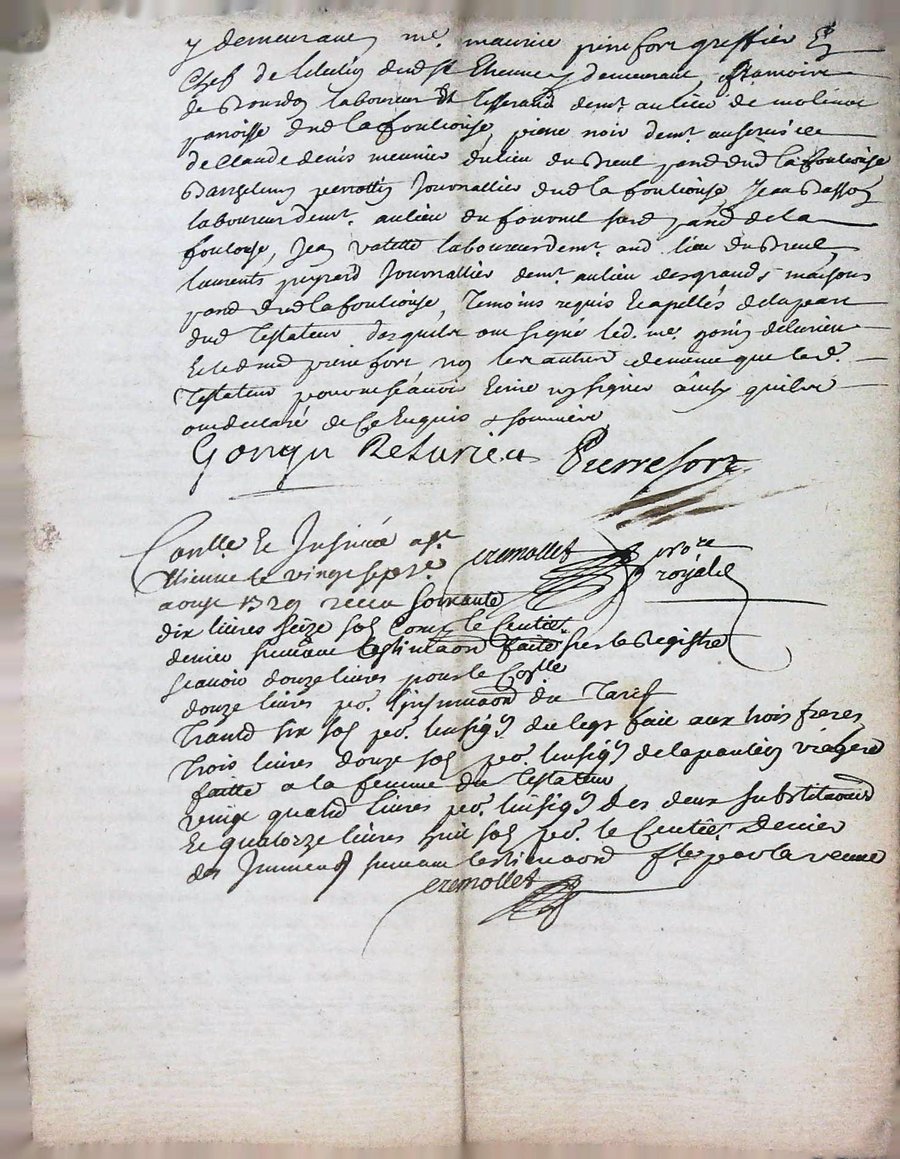 y demeurant, me. maurice pierrefort greffier En
Chef de lelection dud st Etienne y demeurant,
de Bourdon laboureur Et tisserand demt. au lieu de molineau
paroisse dud la fouliouse, pierre noir demt. au service
de Claude denis meunier du lieu du Breul paroisse dud la fouliouse
perrotin Journallier dud la fouliouse, Jean Basson
laboureur demt. au lieu du fournel parsse de la
foulouse, Jean valette laboureur demt. aud lieu du Breul,
laurents peyrard Journallier demt. au lieu des grands maisons
parsse dud la fouliouse, Temoins requis Et apellés de la part
dud Testateur desquels ont signé led. me. gonyn delurieu
Et led me pierrefort non les autres de meme que led.
Testateur pour ne scavoir Ecrire ny signer ainsy quils
ont declaré de ce Enquis & sommés
Gonyn Delurieu Pierrefort
Conlle Et Insinué a st
Etienne le vingt sept
aoust 1729 receu soixante
cremollet no.re royal
dix livres seize sols Compris le Centie.
denier suivant lestimaon faite sur le Registre
scavoir douze livres pour le Conlle
douze livres po. linsinuaon du Tarif
Trante six sols po. linsign du legs fait aux trois freres
trois livres douze sols po. linsign de la pantion viagere
faitte a la femme du Testateur
vingt quatre livres po. linsign des deux substituaons
Et quatorze livres huit sols po. le Centie. Denier
des Immeubles suivant lestimaon fte par la veuve
cremollet